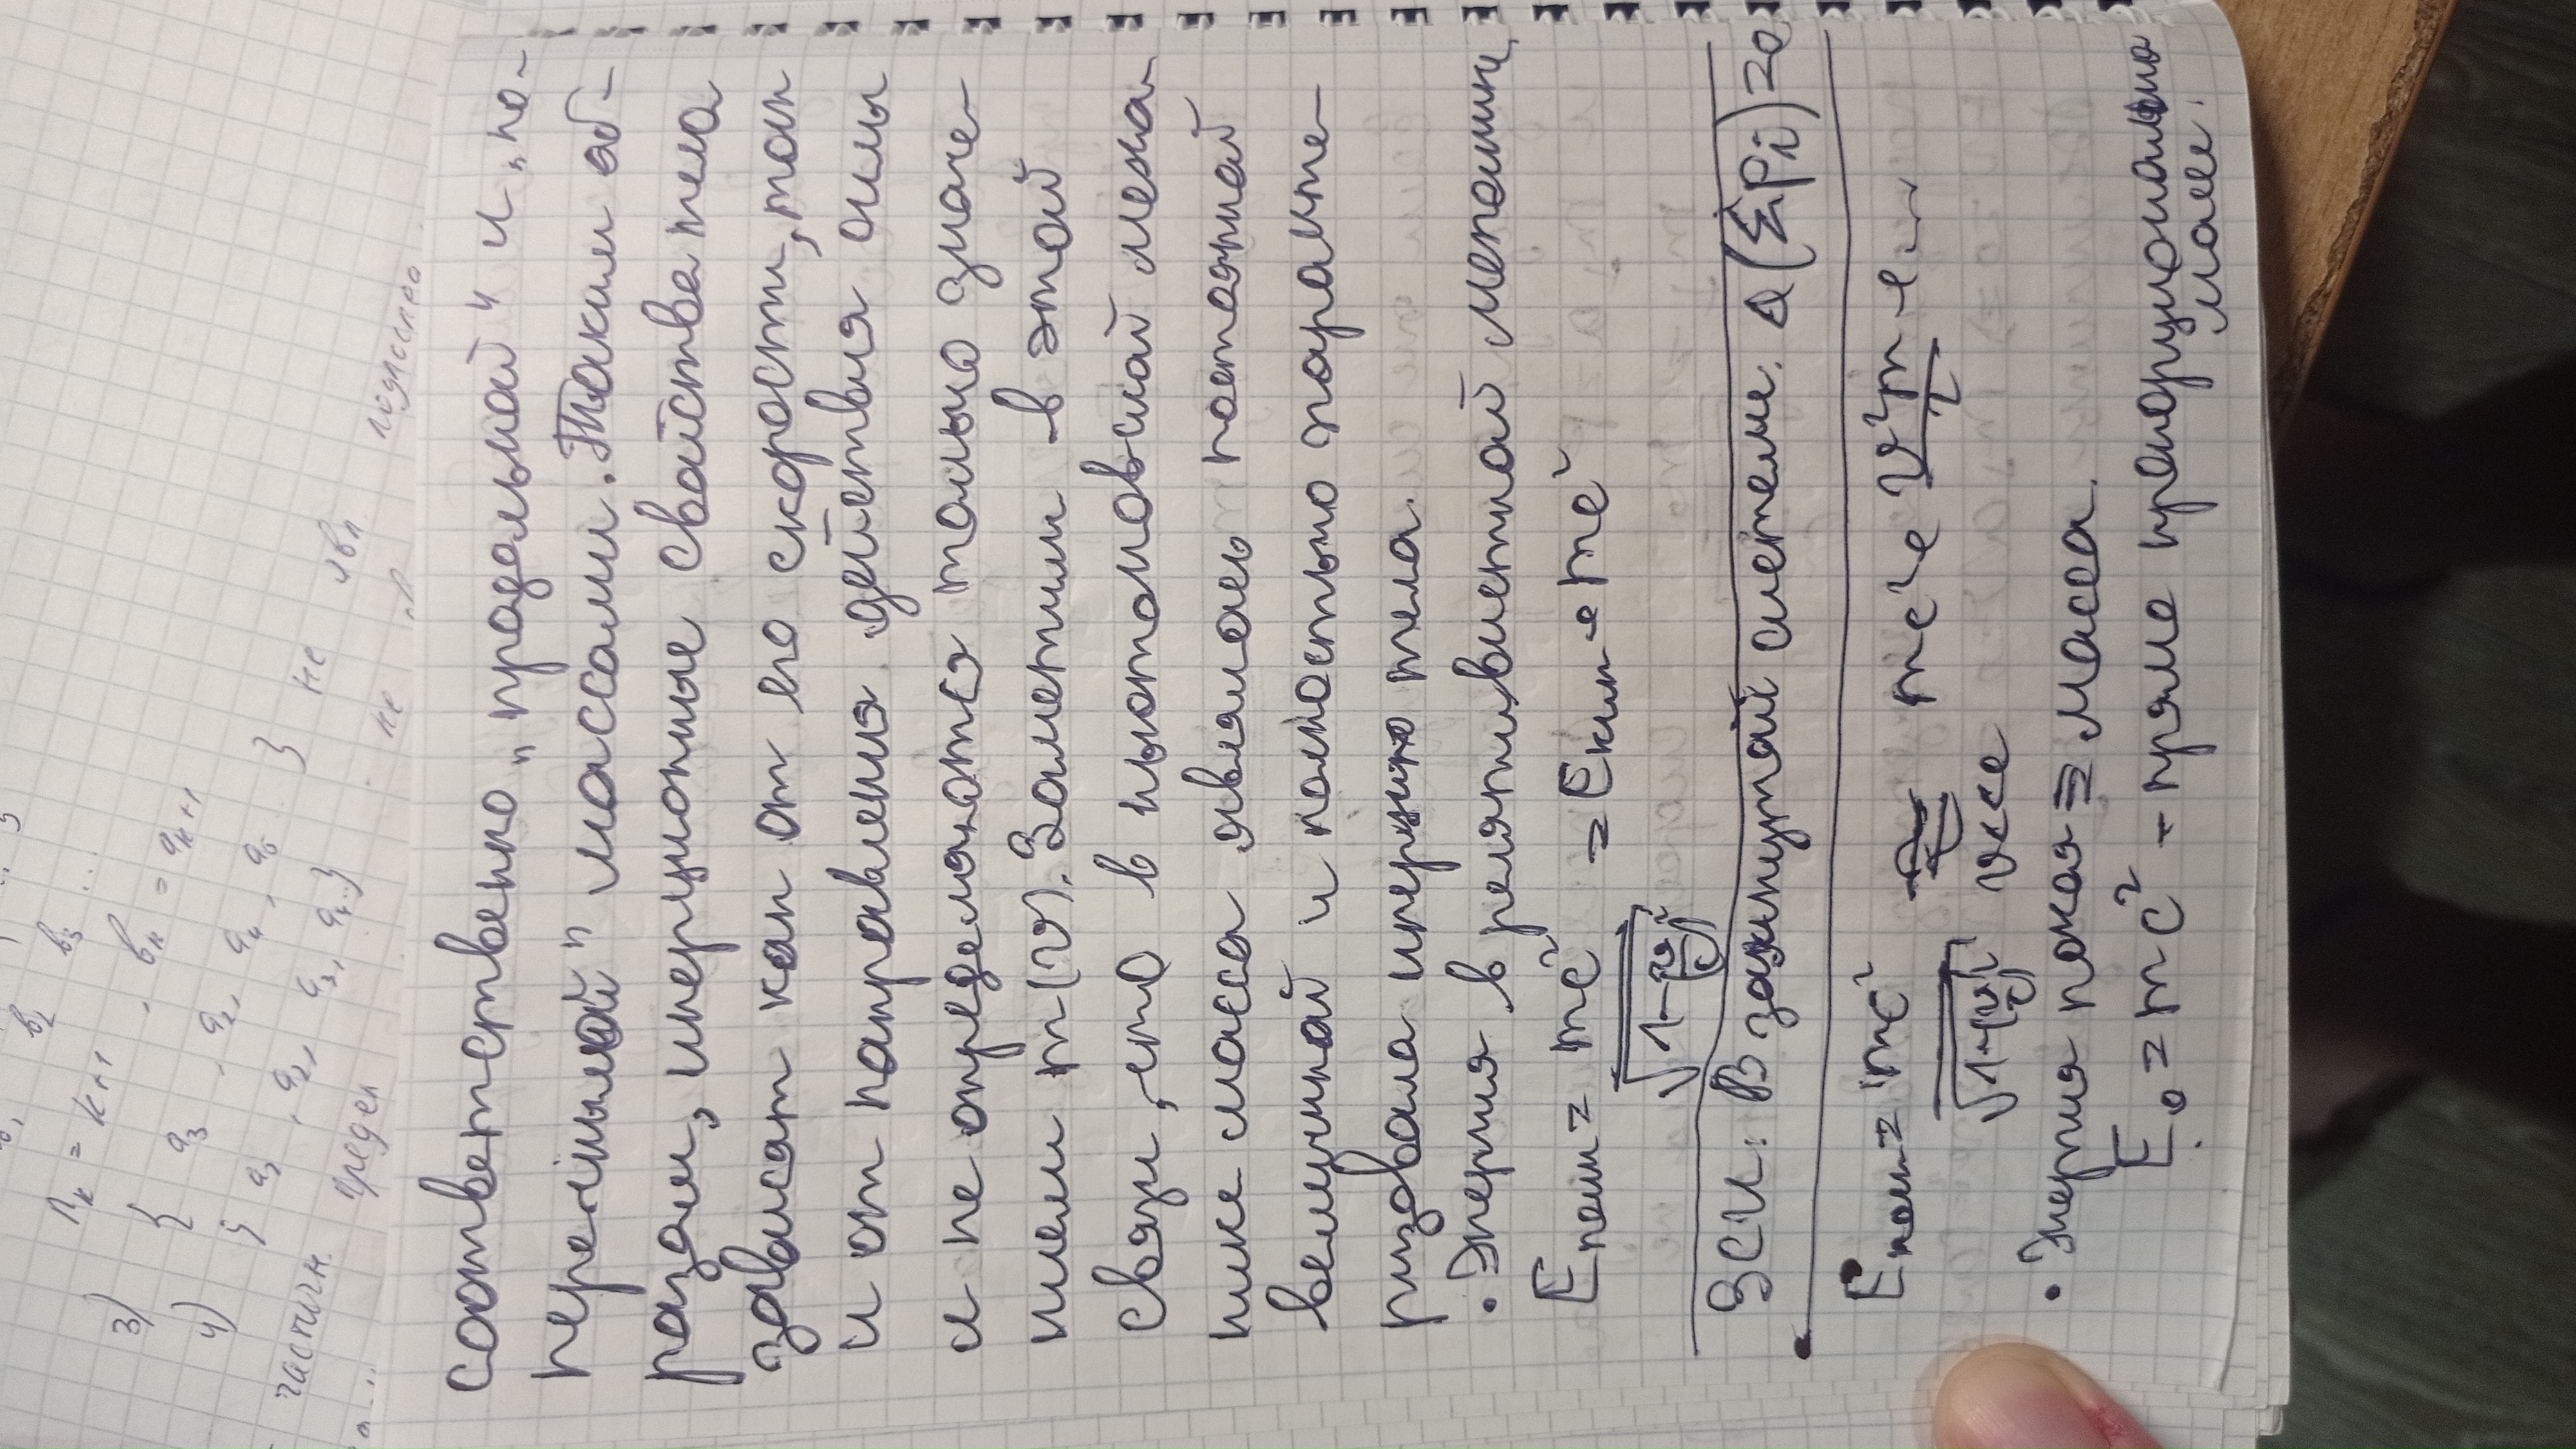 3) n_k = k+1
b_1 b_2 b_3 ...
b_k = a_{k+1}
4) { a_3, a_2, a_4, a_6 ... }
{ a_1, a_2, a_3, a_4 ... }
не явл
частичн. предел
не
соответственно „продольной" и „по-
перечными" массами. Таким об-
разом, инерционные свойства тела
зависят как от его скорости, так
и от направления действия силы
и не определяются только значе-
нием m(v). Заметим в этой
связи, что в ньютоновской меха-
нике масса являлась постоянной
величиной и полностью характе-
ризовала инерцию тела.
• Энергия в релятивистской механике
Eполн = mc² / √(1-(v/c)²) = Eкин + mc²
ЗСИ: В замкнутой системе. Δ(Σpi)=0
Eполн = mc² / √(1-(v/c)²) mc² + v²m/2 + ...
v<<c
• Энергия покоя ≡ масса.
E₀ = mc² – прямо пропорциональна
массе.